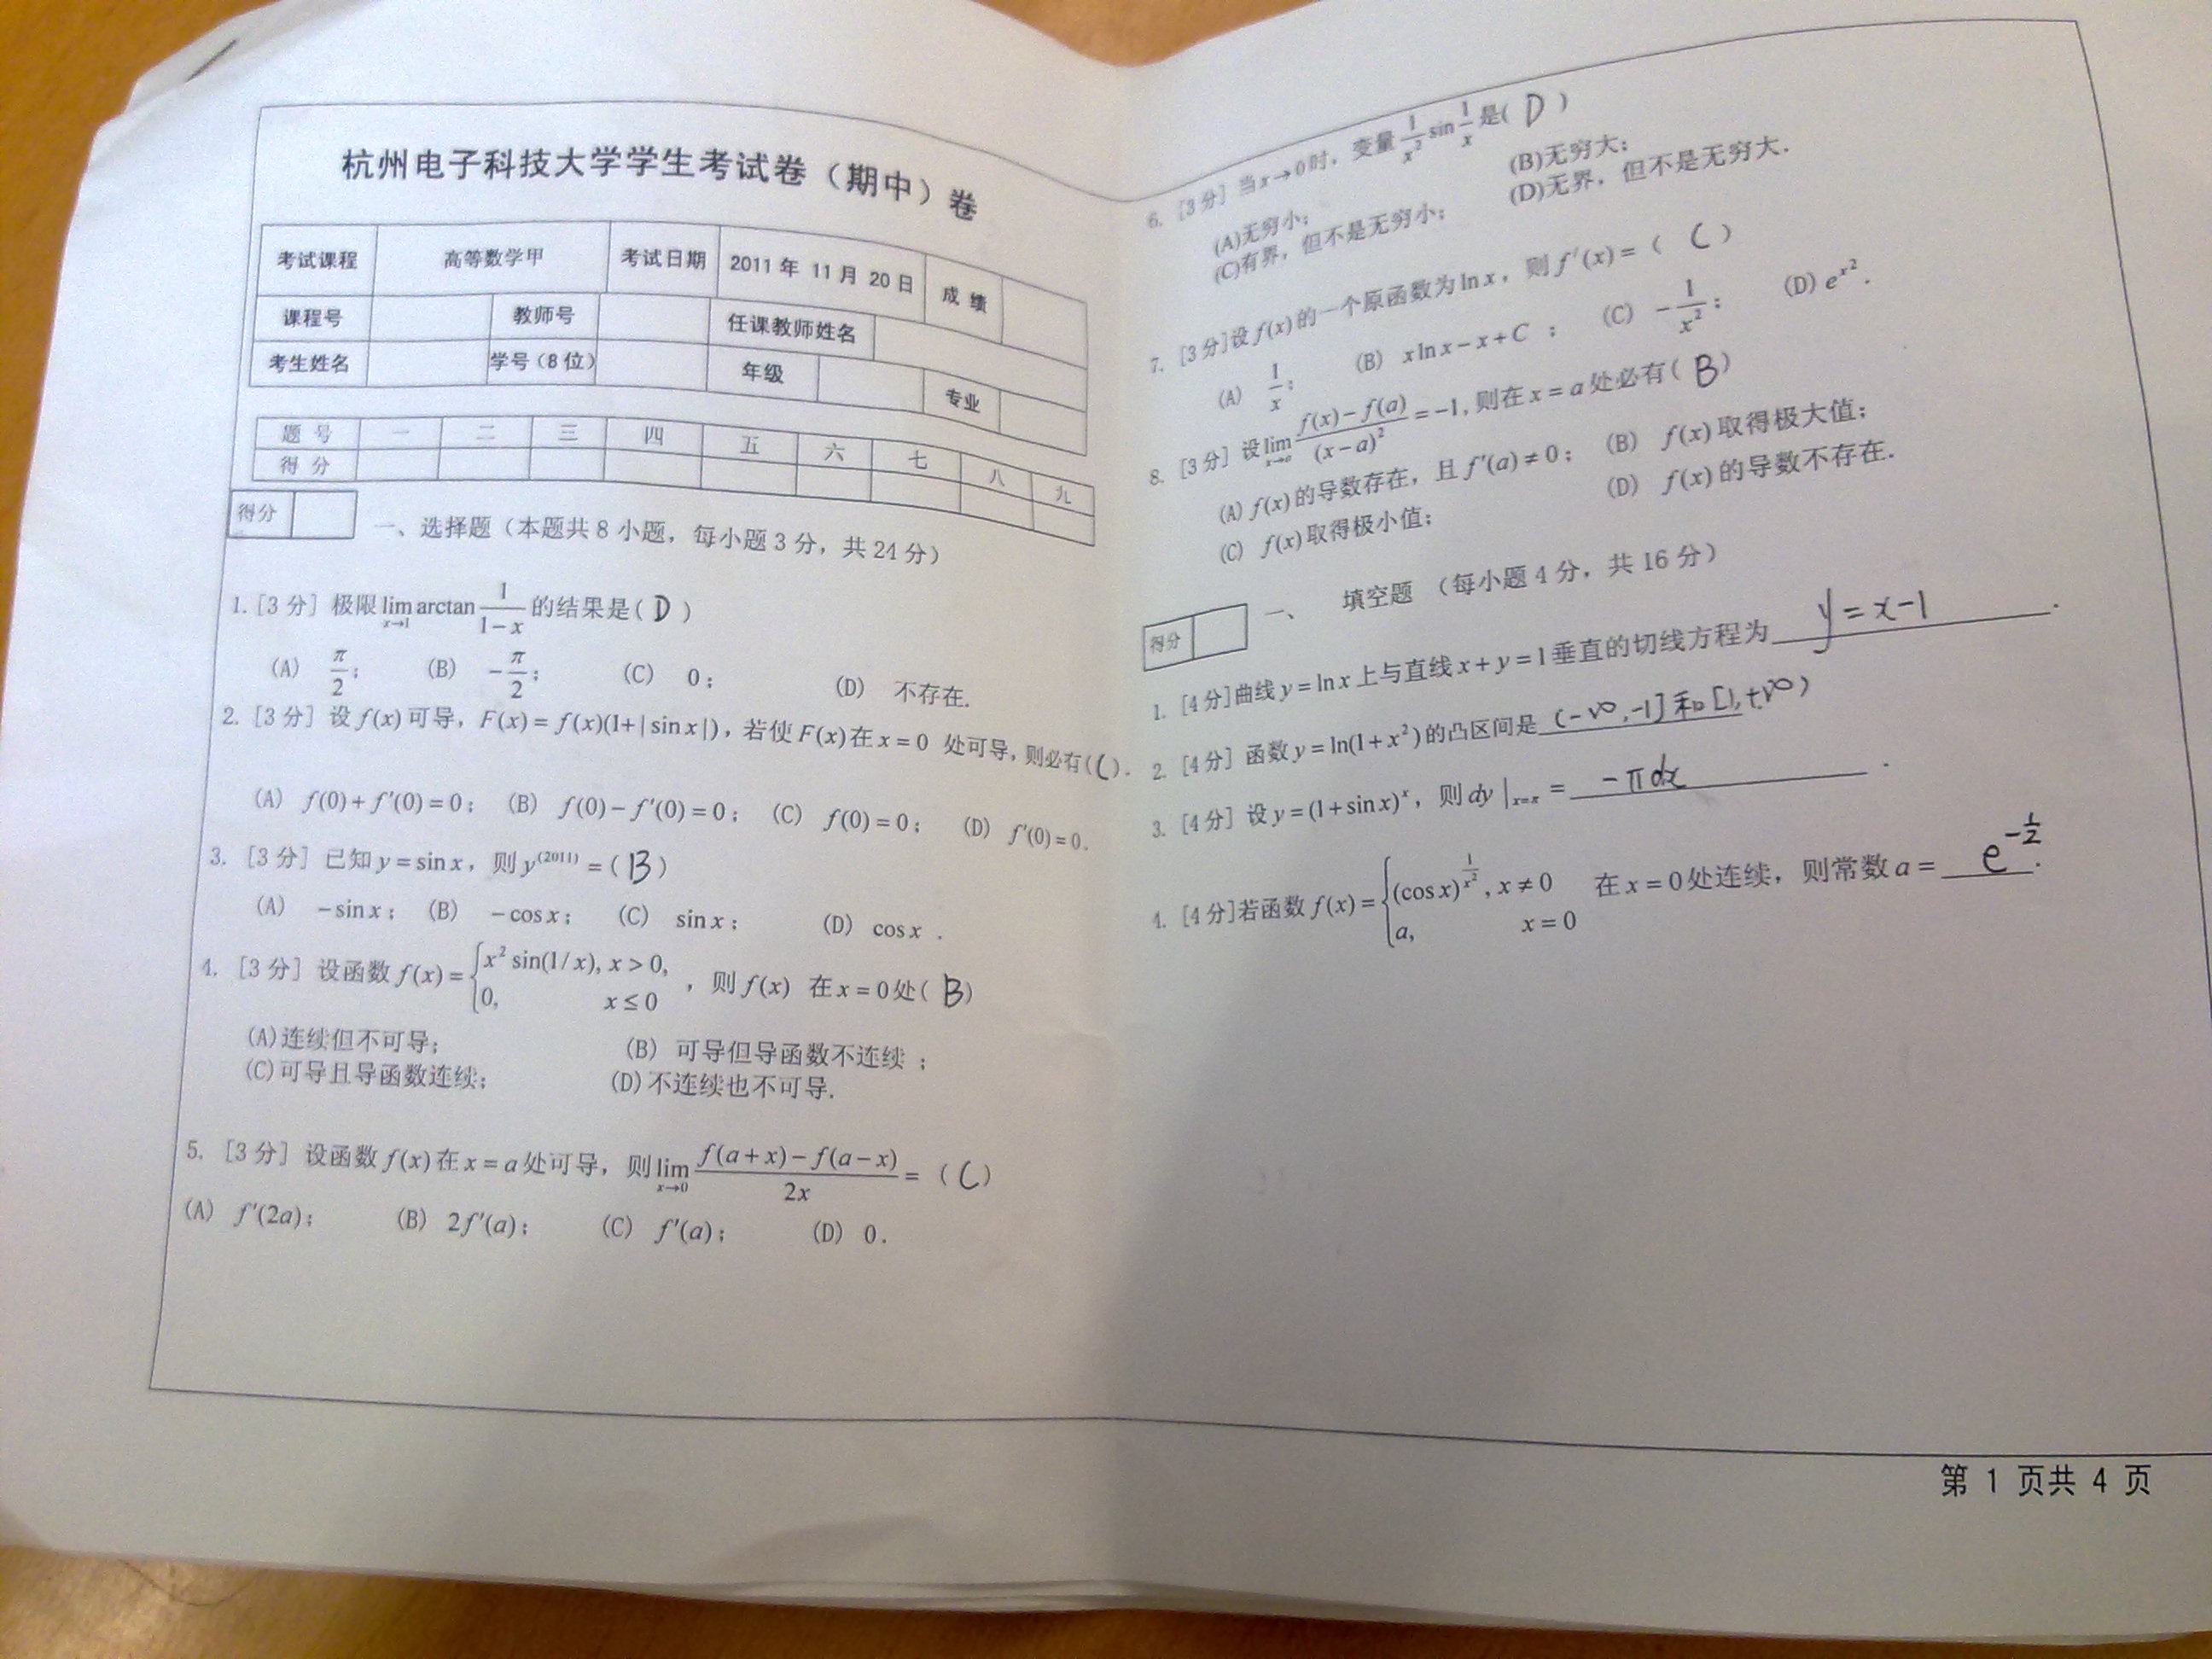 杭州电子科技大学学生考试卷（期中）卷
考试课程 高等数学甲 考试日期 2011年 11月 20日 成绩
课程号 教师号 任课教师姓名
考生姓名 学号（8位） 年级 专业
题号 一 二 三 四 五 六 七 八 九
得分
得分
一、选择题（本题共8小题，每小题3分，共24分）
1.[3分] 极限 lim_{x→1} arctan 1/(1−x) 的结果是( D )
(A) π/2; (B) −π/2; (C) 0; (D) 不存在.
2.[3分] 设 f(x) 可导, F(x)=f(x)(1+|sin x|), 若使 F(x) 在 x=0 处可导, 则必有( C ).
(A) f(0)+f′(0)=0; (B) f(0)−f′(0)=0; (C) f(0)=0; (D) f′(0)=0.
3. [3分] 已知 y=sin x, 则 y^{(2011)} =( B )
(A) −sin x; (B) −cos x; (C) sin x; (D) cos x .
4. [3分] 设函数 f(x)={x² sin(1/x), x>0,
0, x≤0 , 则 f(x) 在 x=0 处( B )
(A)连续但不可导; (B) 可导但导函数不连续 ;
(C)可导且导函数连续; (D)不连续也不可导.
5. [3分] 设函数 f(x) 在 x=a 处可导, 则 lim_{x→0} (f(a+x)−f(a−x))/(2x) = ( C )
(A) f′(2a); (B) 2f′(a); (C) f′(a); (D) 0.
6. [3分] 当 x→0 时, 变量 1/x² sin 1/x 是( D )
(A)无穷小; (B)无穷大;
(C)有界，但不是无穷小; (D)无界，但不是无穷大.
7. [3分]设 f(x) 的一个原函数为 ln x, 则 f′(x)=( C )
(A) 1/x; (B) x ln x−x+C ; (C) −1/x²; (D) e^{x²}.
8. [3分] 设 lim_{x→a} (f(x)−f(a))/(x−a)² =−1, 则在 x=a 处必有( B )
(A) f(x) 的导数存在, 且 f′(a)≠0; (B) f(x) 取得极大值;
(C) f(x) 取得极小值; (D) f(x) 的导数不存在.
得分
一、 填空题 （每小题4分，共16分）
1. [4分]曲线 y=ln x 上与直线 x+y=1 垂直的切线方程为 y=x-1 .
2. [4分] 函数 y=ln(1+x²) 的凸区间是 (-∞,-1]和[1,+∞) .
3. [4分] 设 y=(1+sin x)^x, 则 dy|_{x=π} = -πdx .
4. [4分]若函数 f(x)={(cos x)^{1/x²}, x≠0
a, x=0 在 x=0 处连续, 则常数 a= e^{-1/2} .
第 1 页共 4 页